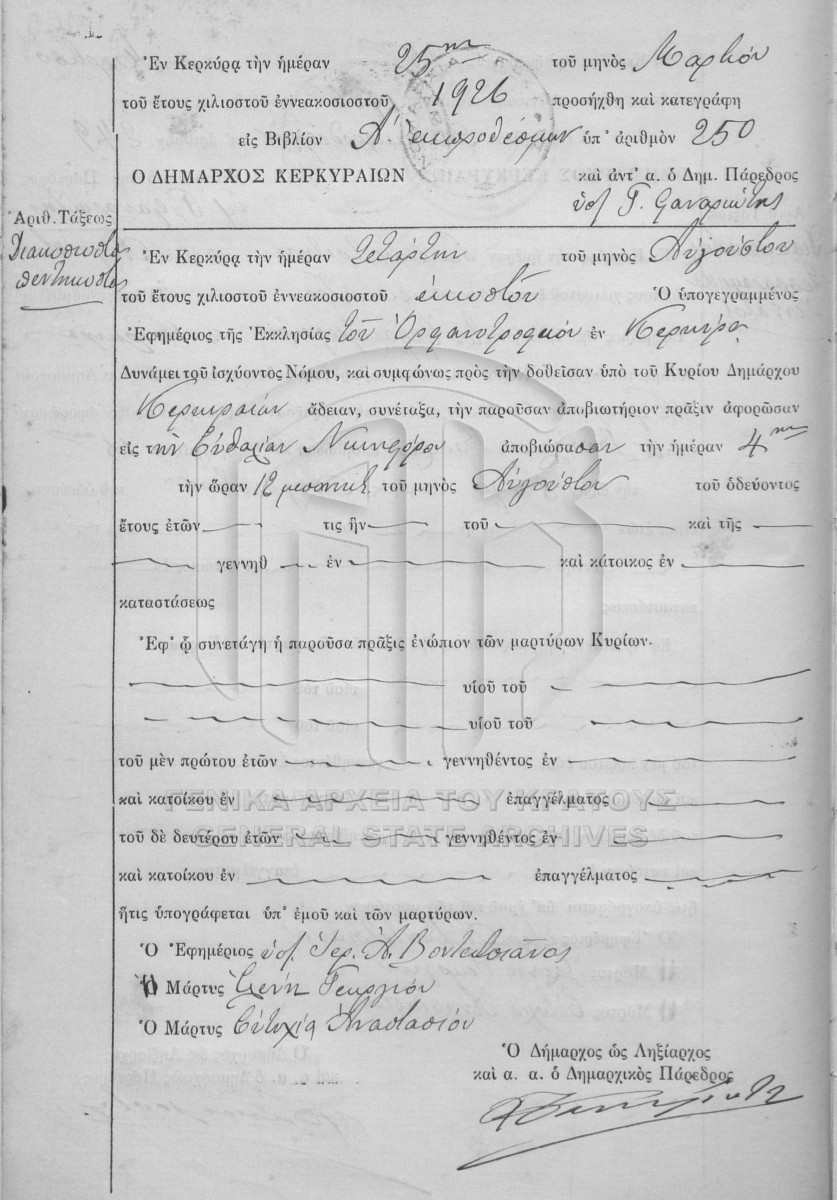 Ἐν Κερκύρᾳ τὴν ἡμέραν 25ην τοῦ μηνὸς Μαρτίου
τοῦ ἔτους χιλιοστοῦ ἐννεακοσιοστοῦ 1926 προσήχθη καὶ κατεγράφη
εἰς Βιβλίον Α' ἐκπροθέσμων ὑπ' ἀριθμὸν 250
Ο ΔΗΜΑΡΧΟΣ ΚΕΡΚΥΡΑΙΩΝ καὶ ἀντ' α. ὁ Δημ. Πάρεδρος
ὑπ. Γ.
Ἀριθ. Τάξεως
Διακοσιοστὸς
πεντηκοστὸς
Ἐν Κερκύρᾳ τὴν ἡμέραν τετάρτην τοῦ μηνὸς Αὐγούστου
τοῦ ἔτους χιλιοστοῦ ἐννεακοσιοστοῦ εἰκοστοῦ Ὁ ὑπογεγραμμένος
Ἐφημέριος τῆς Ἐκκλησίας τοῦ Ὀρφανοτροφείου ἐν Κερκύρᾳ
Δυνάμει τοῦ ἰσχύοντος Νόμου, καὶ συμφώνως πρὸς τὴν δοθεῖσαν ὑπὸ τοῦ Κυρίου Δημάρχου
Κερκυραίων ἄδειαν, συνέταξα, τὴν παροῦσαν ἀποβιωτήριον πρᾶξιν ἀφορῶσαν
εἰς τὴν Εὐθαλίαν Νικηφόρου ἀποβιώσασαν τὴν ἡμέραν 4ην
τὴν ὥραν 12 μεσονυκτ. τοῦ μηνὸς Αὐγούστου τοῦ ὁδεύοντος
ἔτους ἐτῶν τις ἦν τοῦ καὶ τῆς
γεννηθ ἐν καὶ κάτοικος ἐν
καταστάσεως
Ἐφ' ᾧ συνετάγη ἡ παροῦσα πρᾶξις ἐνώπιον τῶν μαρτύρων Κυρίων.
υἱοῦ τοῦ
υἱοῦ τοῦ
τοῦ μὲν πρώτου ἐτῶν γεννηθέντος ἐν
καὶ κατοίκου ἐν ἐπαγγέλματος
ΓΕΝΙΚΑ ΑΡΧΕΙΑ ΤΟΥ ΚΡΑΤΟΥΣ
GENERAL STATE ARCHIVES
τοῦ δὲ δευτέρου ἐτῶν γεννηθέντος ἐν
καὶ κατοίκου ἐν ἐπαγγέλματος
ἥτις ὑπογράφεται ὑπ' ἐμοῦ καὶ τῶν μαρτύρων.
Ὁ Ἐφημέριος ὑπ. Ἱερ. Α.
Ἡ Μάρτυς Ἑλένη Γεωργίου
Ὁ Μάρτυς Εὐτυχία Ἀναστασίου
Ὁ Δήμαρχος ὡς Ληξίαρχος
καὶ α. α. ὁ Δημαρχικὸς Πάρεδρος